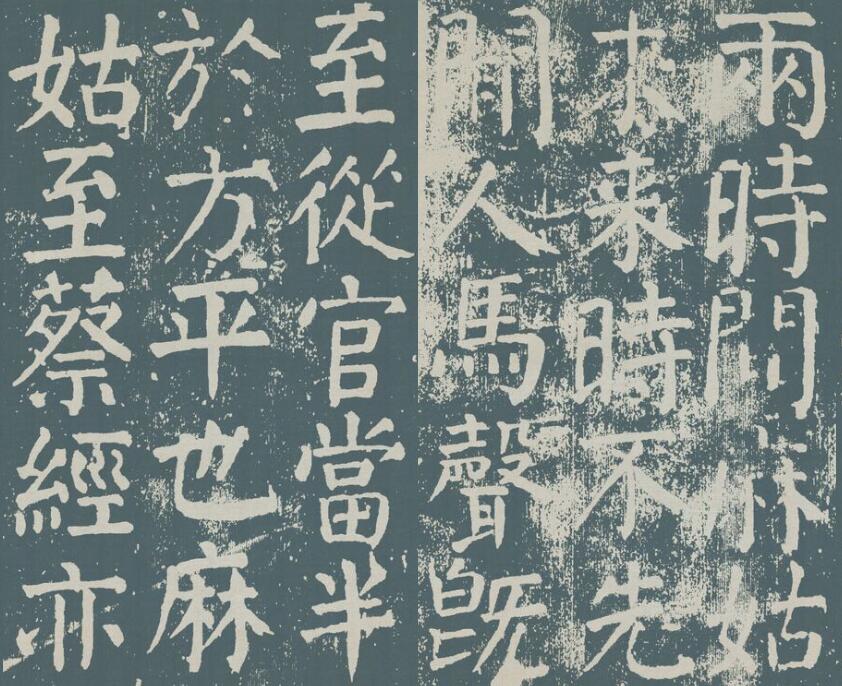 兩時間麻姑
来来時不先
聞人馬聲既
至從官當半
於方平也麻
姑至蔡經亦